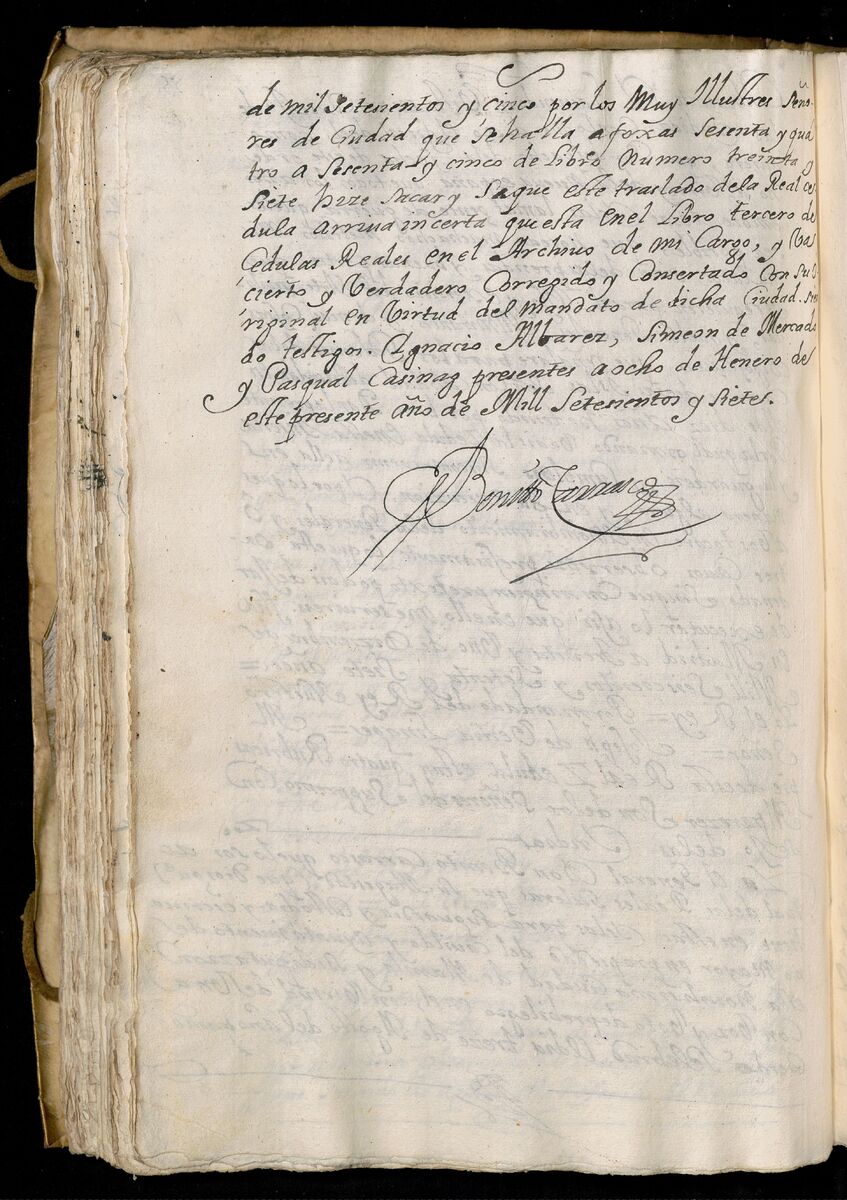 de mil setesientos y cinco por los Muy Illustres Seño
res de Ciudad que se halla a foxas sesenta y qua
tro a sesenta y cinco de Libro numero treinta y
siete hize sacar y saque este traslado de la Real ce
dula arriva incerta que esta en el Libro tercero de
Cedulas Reales en el Archivo de mi Cargo, y Va
cierto y Verdadero Corregido y Consertado Con su o
riginal en Virtud del mandato de dicha Ciudad. sien
do testigos. Ignacio Albarez, Simeon de Mercado
y Pasqual Casinag presentes a ocho de Henero de
este presente año de Mill Setesientos y siete.
Benitto Carrasco